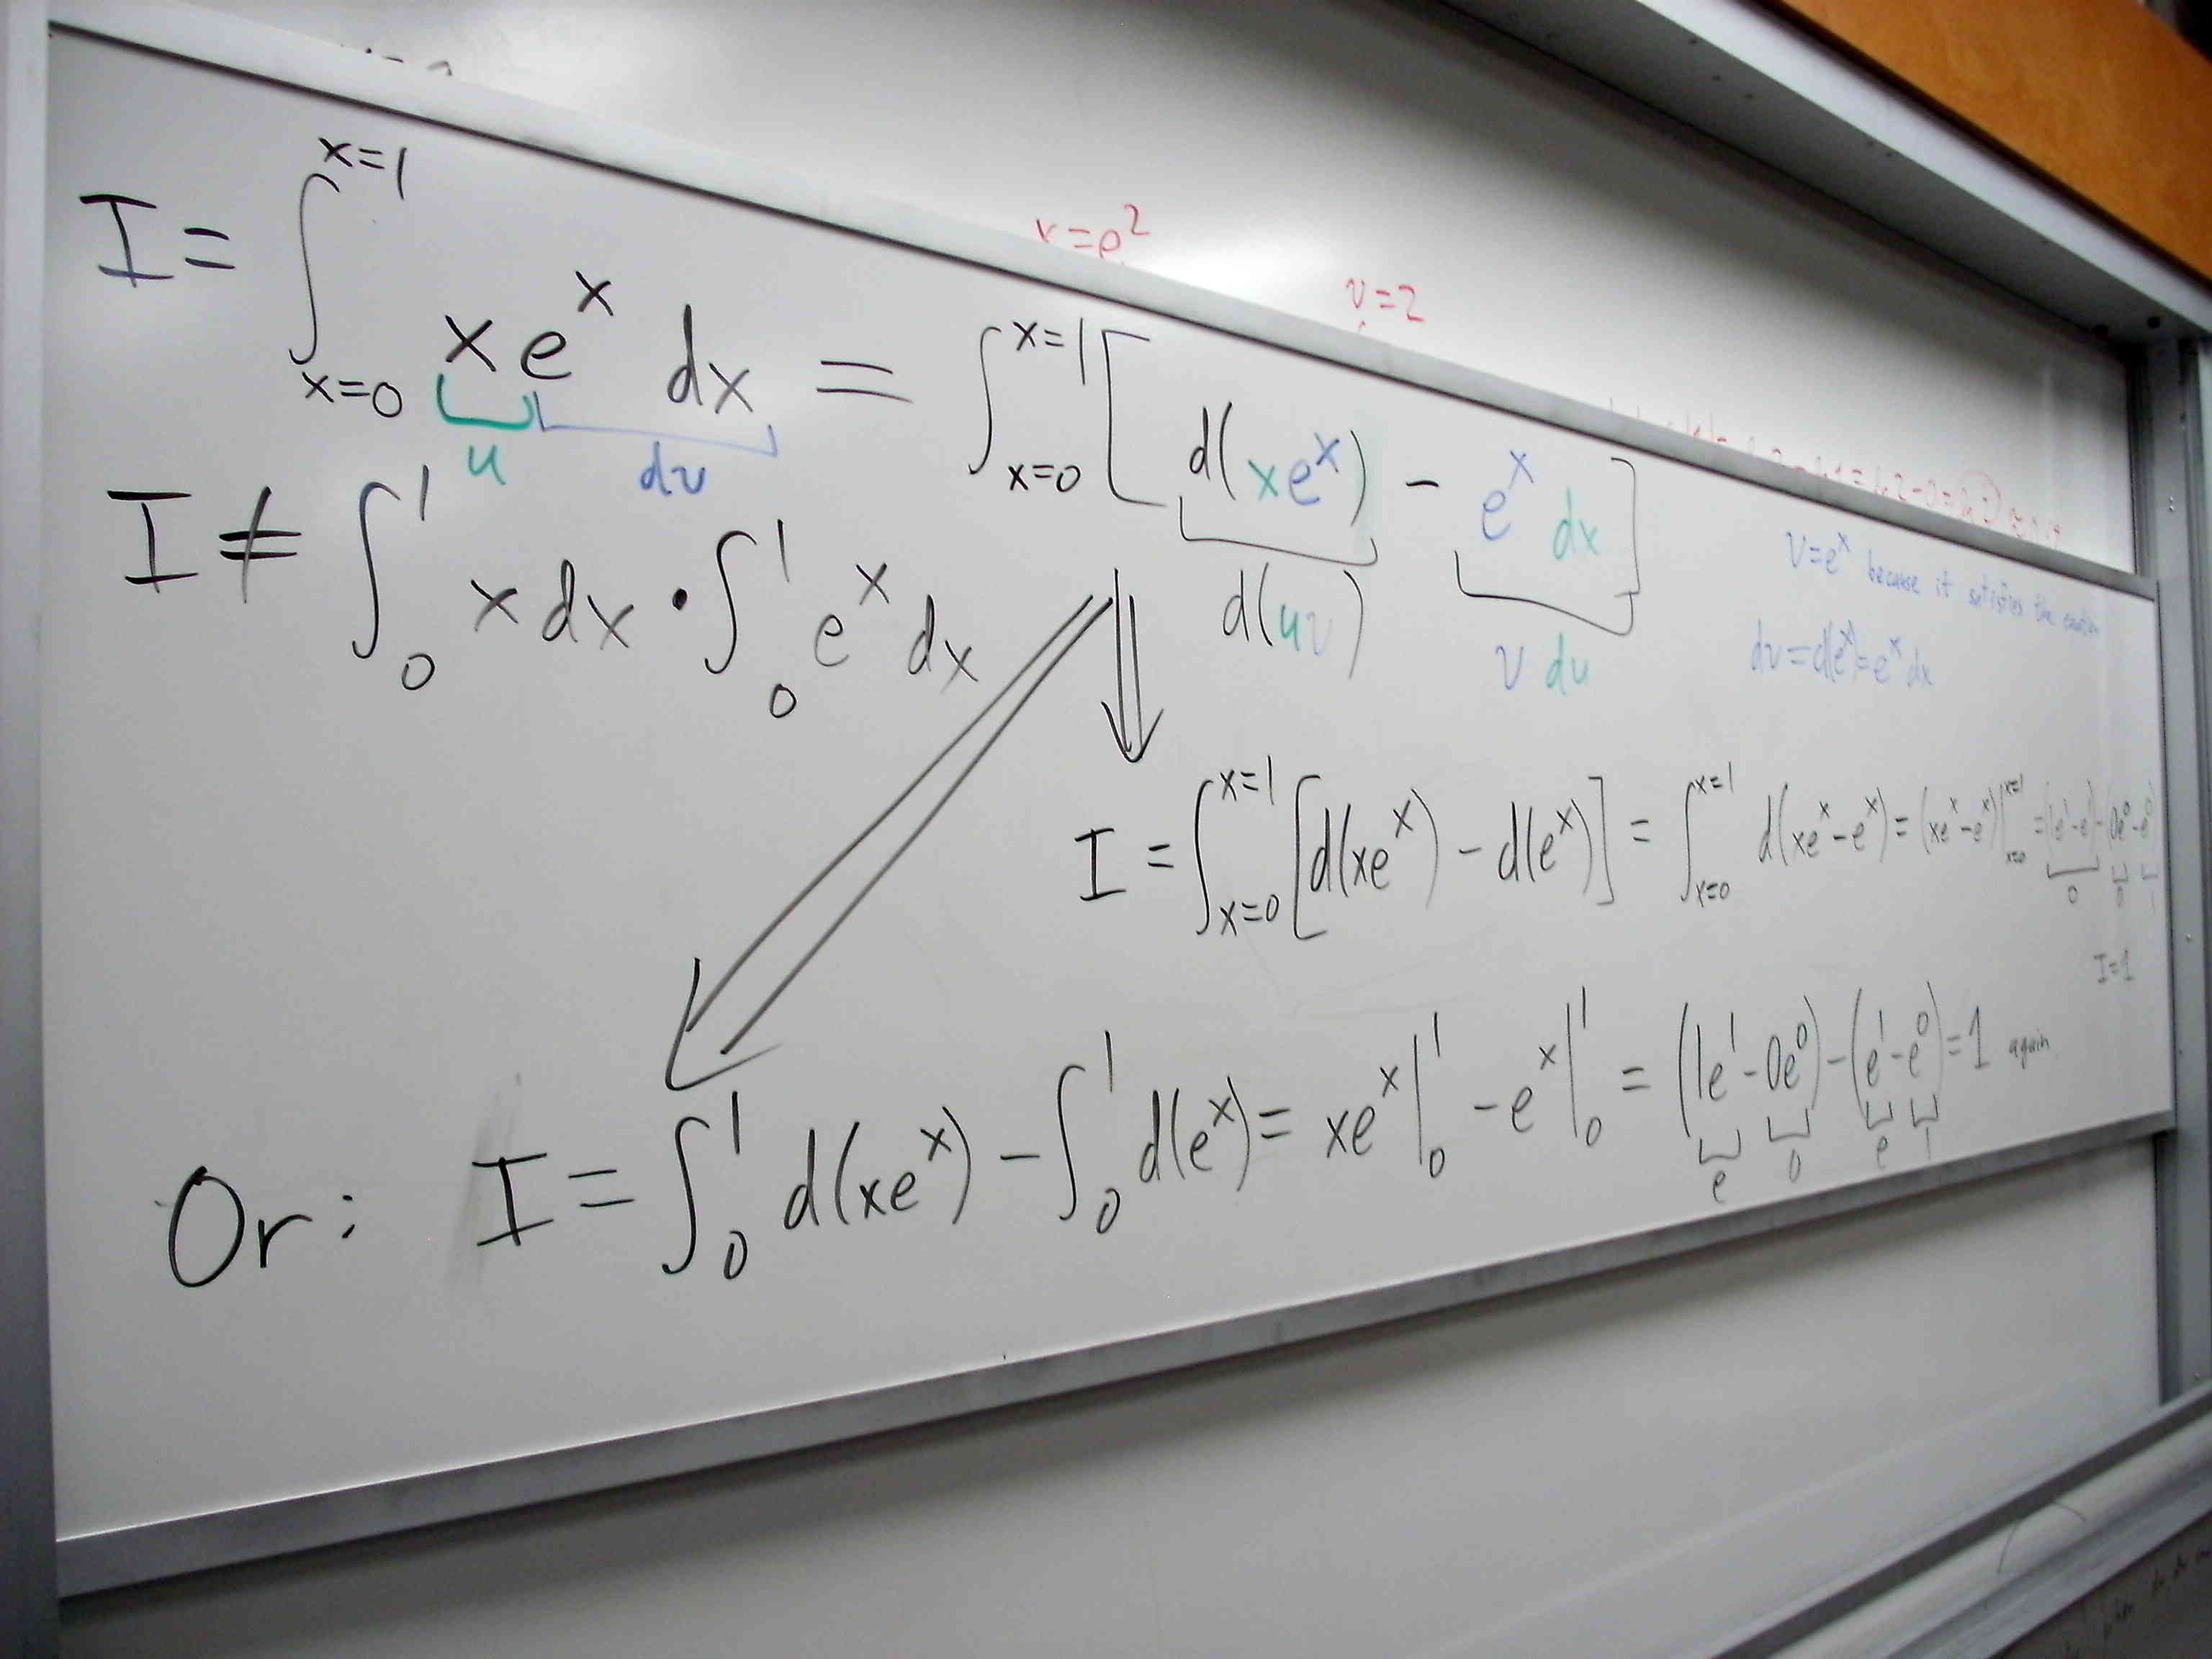 x=e²
v=2
I = ∫_{x=0}^{x=1} x e^x dx = ∫_{x=0}^{x=1} [ d(xe^x) − e^x dx ]
u dv d(uv) v du
v=e^x because it satisfies the equation
dv = d(e^x) = e^x dx
I ≠ ∫_0^1 x dx • ∫_0^1 e^x dx
I = ∫_{x=0}^{x=1} [d(xe^x) − d(e^x)] = ∫_{x=0}^{x=1} d(xe^x − e^x) = (xe^x − e^x)|_{x=0}^{x=1} = (1e^1 − e^1) − (0e^0 − e^0)
0 0 1
I=1
Or: I = ∫_0^1 d(xe^x) − ∫_0^1 d(e^x) = xe^x|_0^1 − e^x|_0^1 = (1e^1 − 0e^0) − (e^1 − e^0) = 1 again
e 0 e 1